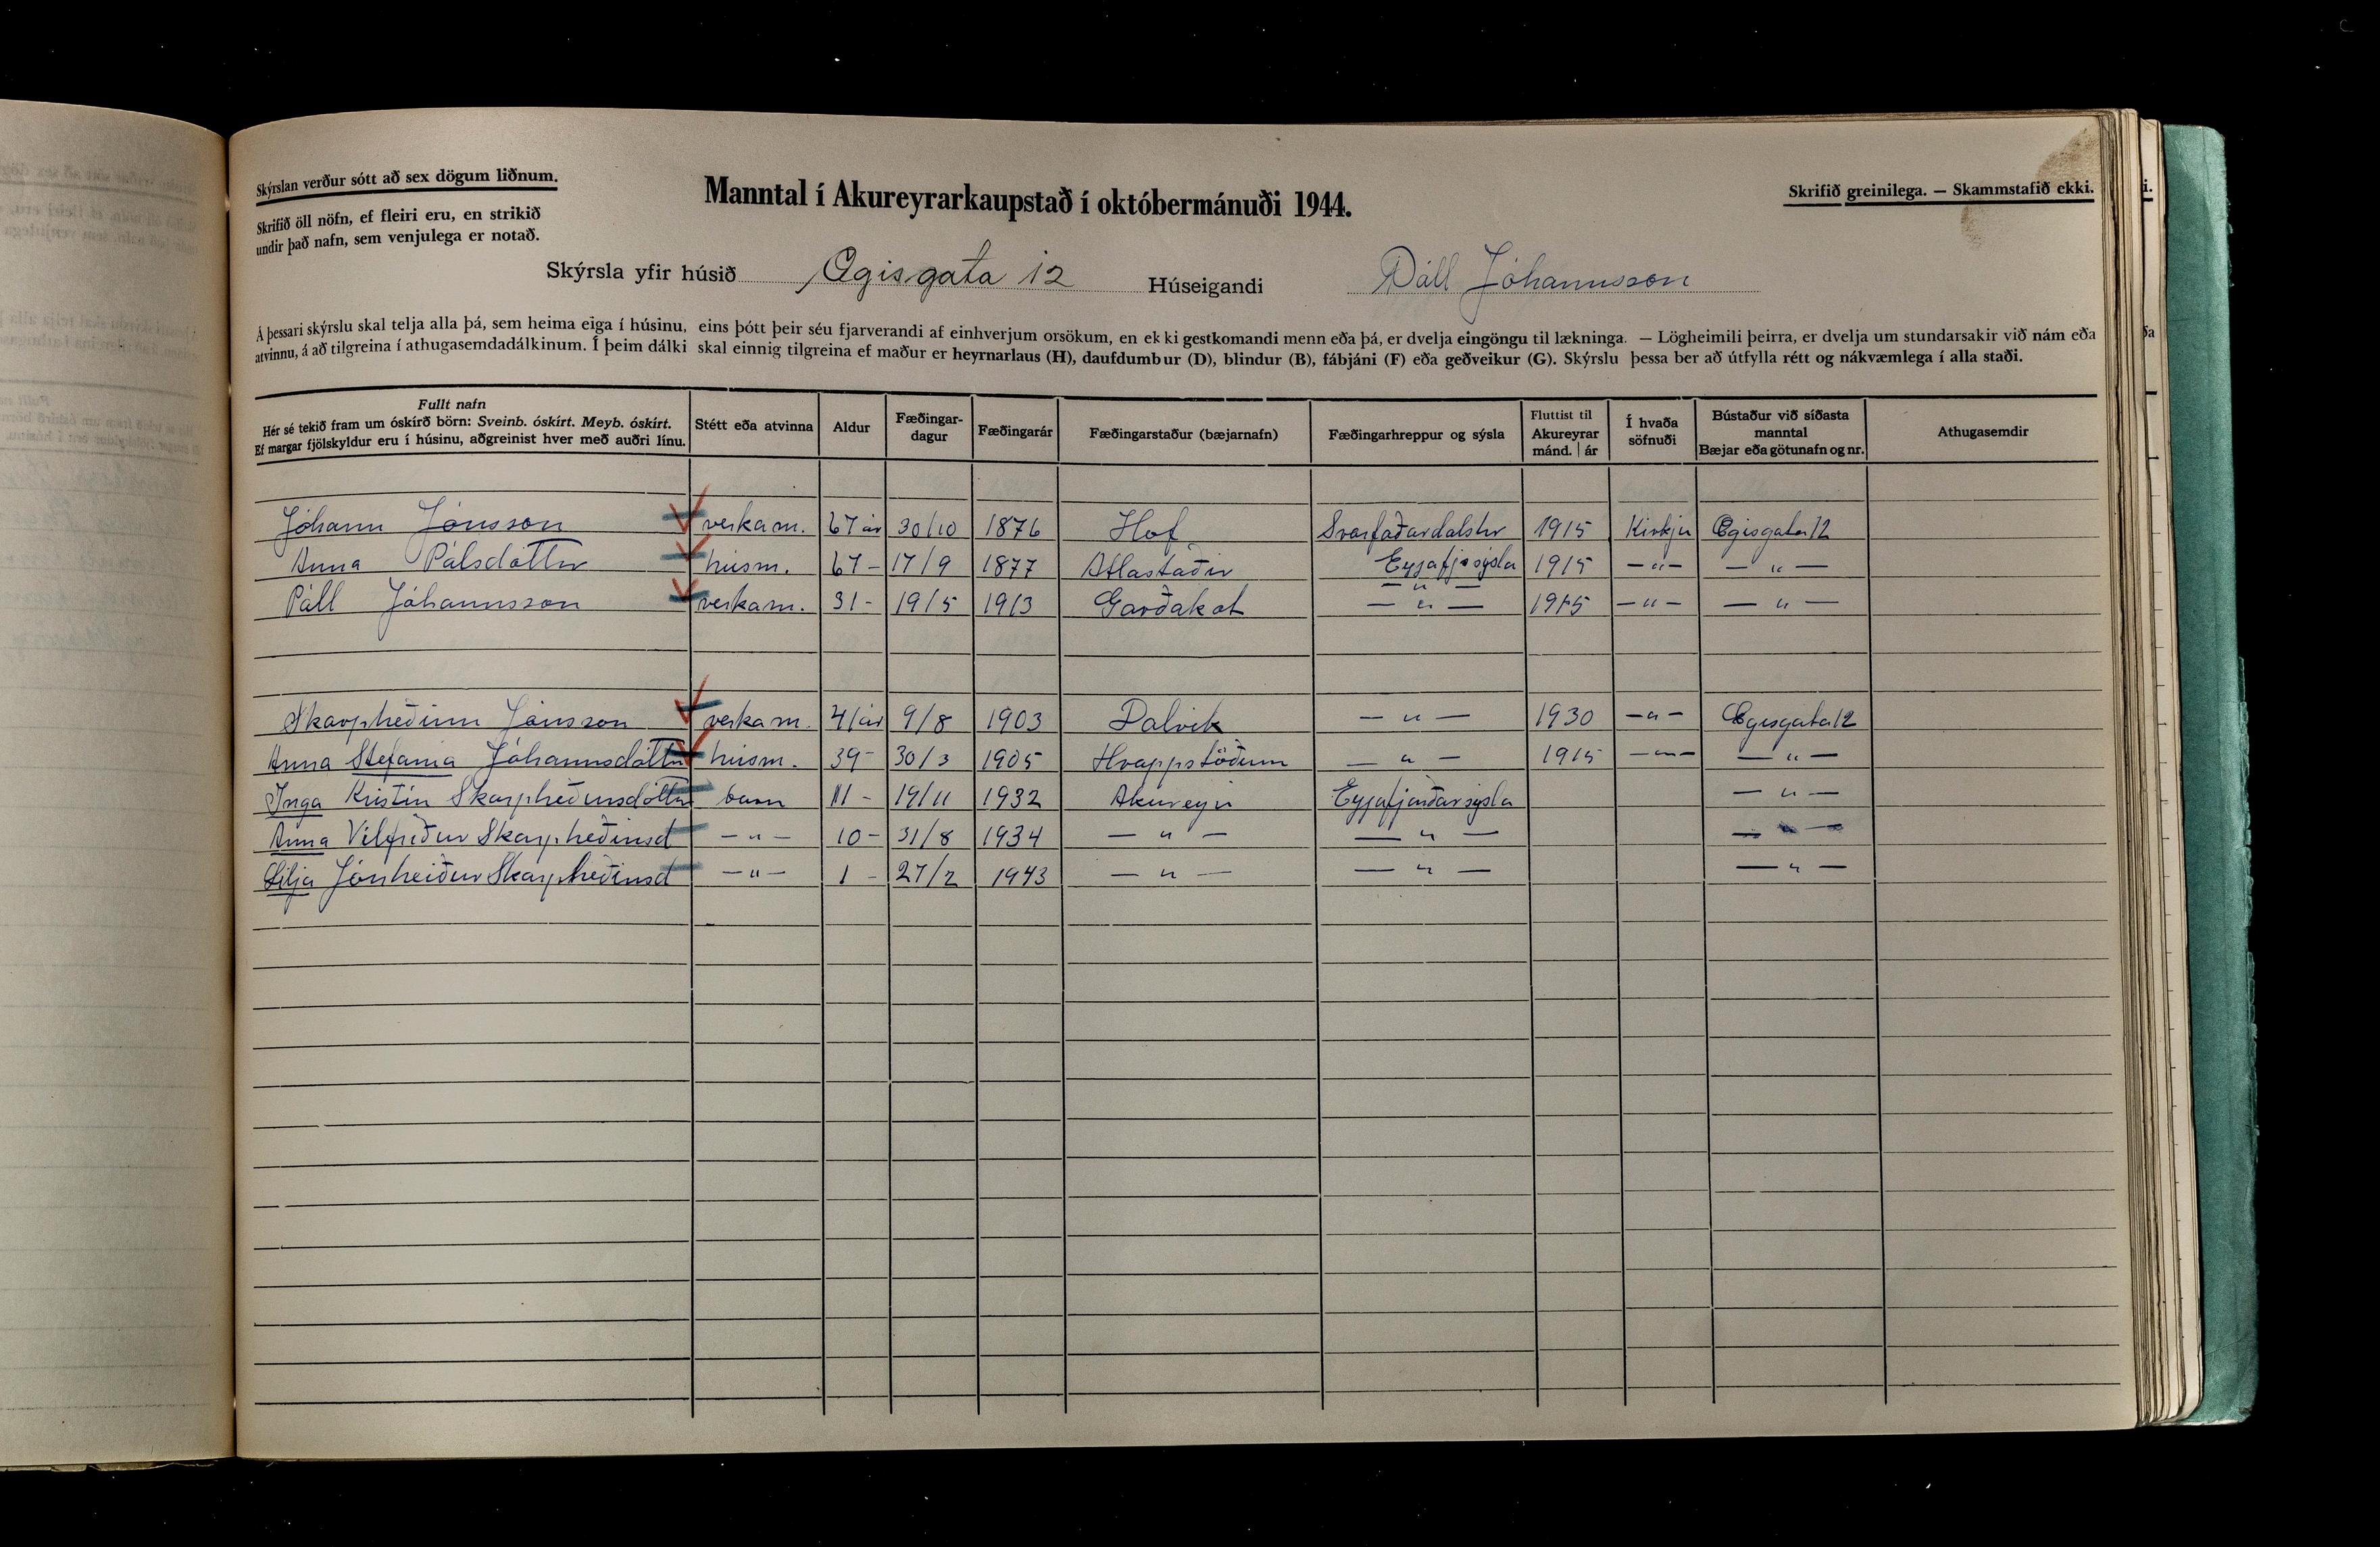 Skýrslan verður sótt að sex dögum liðnum.
Skrifið öll nöfn, ef fleiri eru, en strikið
undir það nafn, sem venjulega er notað.
Manntal í Akureyrarkaupstað í októbermánuði 1944.
Skrifið greinilega. — Skammstafið ekki.
Skýrsla yfir húsið Ægisgata 12 Húseigandi Páll Jóhannsson
Á þessari skýrslu skal telja alla þá, sem heima eiga í húsinu, eins þótt þeir séu fjarverandi af einhverjum orsökum, en ekki gestkomandi menn eða þá, er dvelja eingöngu til lækninga. — Lögheimili þeirra, er dvelja um stundarsakir við nám eða
atvinnu, á að tilgreina í athugasemdadálkinum. Í þeim dálki skal einnig tilgreina ef maður er heyrnarlaus (H), daufdumbur (D), blindur (B), fábjáni (F) eða geðveikur (G). Skýrslu þessa ber að útfylla rétt og nákvæmlega í alla staði.
Fullt nafn
Hér sé tekið fram um óskírð börn: Sveinb. óskírt. Meyb. óskírt.
Ef margar fjölskyldur eru í húsinu, aðgreinist hver með auðri línu.
Stétt eða atvinna
Aldur
Fæðingar-
dagur
Fæðingarár
Fæðingarstaður (bæjarnafn)
Fæðingarhreppur og sýsla
Fluttist til
Akureyrar
mánd. | ár
Í hvaða
söfnuði
Bústaður við síðasta
manntal
Bæjar eða götunafn og nr.
Athugasemdir
Jóhann Jónsson verkam. 67 ár 30/10 1876 Hof Svarfaðardalshr 1915 Kirkju Ægisgata 12
Anna Pálsdóttir húsm. 67 - 17/9 1877 Atlastaðir Eyjafj.sýsla 1915 — " — — " —
— " —
Páll Jóhannsson verkam. 31 - 19/5 1913 Garðakot — " — 1915 — " — — " —
Skarphéðinn Jónsson verkam. 41 ár 9/8 1903 Dalvík — " — 1930 — " — Ægisgata 12
Anna Stefanía Jóhannsdóttir húsm. 39 - 30/3 1905 Hrappstöðum — " — 1915 — " — — " —
Inga Kristín Skarphéðinsdóttir barn 11 - 19/11 1932 Akureyri Eyjafjarðarsýsla — " —
Anna Vilfríður Skarphéðinsd — " — 10 - 31/8 1934 — " — — " — — " —
Lilja Jónheiður Skarphéðinsd — " — 1 - 27/2 1943 — " — — " — — " —